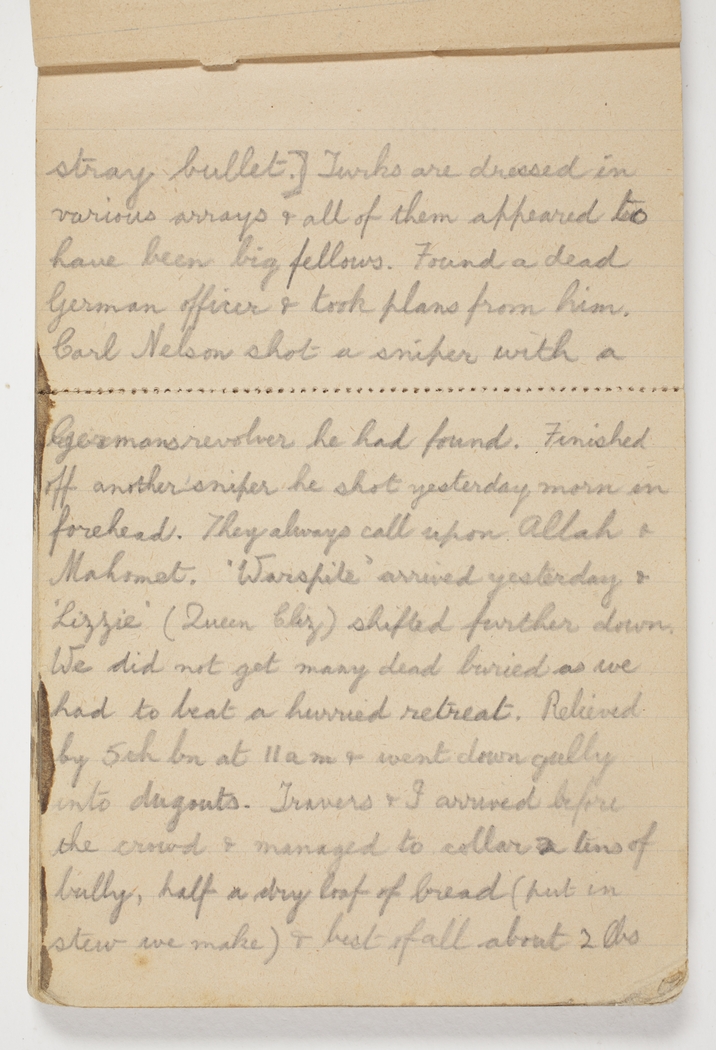 stray bullet.] Turks are dressed in
various arrays & all of them appeared to
have been big fellows. Found a dead
German officer & took plans from him.
Carl Nelson shot a sniper with a
Germans revolver he had found. Finished
off another sniper he shot yesterday morn in
forehead. They always call upon Allah &
Mahomet. 'Warspite' arrived yesterday &
'Lizzie' (Queen Eliz) shifted further down.
We did not get many dead buried as we
had to beat a hurried retreat. Relieved
by 5th bn at 11am & went down gully
into dugouts. Travers & I arrived before
the crowd & managed to collar 2 tins of
bully, half a dry loaf of bread (put in
stew we make) & best of all about 2 lbs